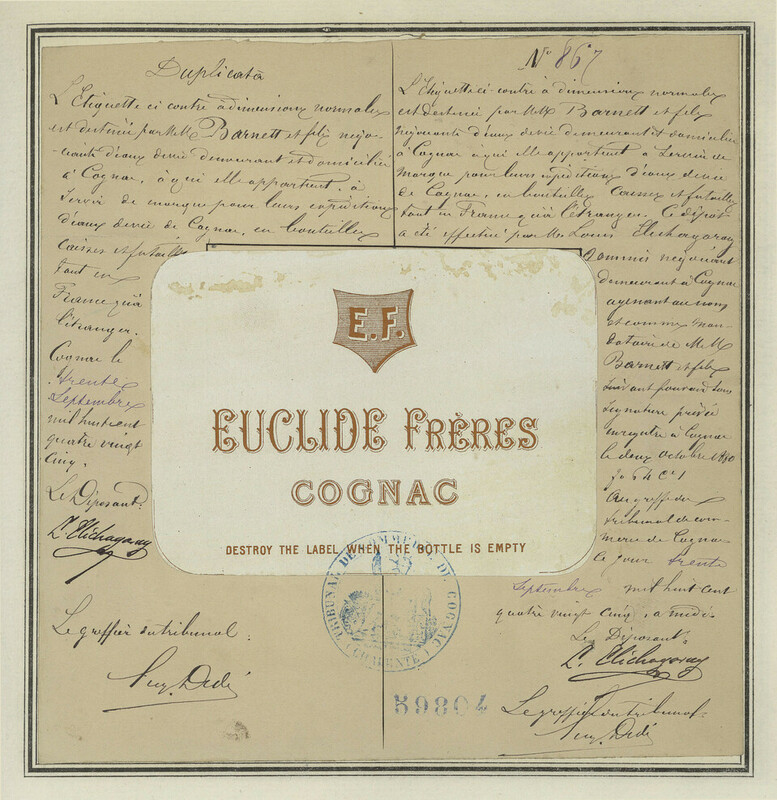 Duplicata
L'Etiquette ci contre à dimensions normales
est destinée par M.M. Barnett et félix négo-
ciants d'eaux devie demeurant et domiciliés
à Cognac, à qui elle appartient, à
servir de marque pour leurs expéditions
d'eaux devie de Cognac, en bouteilles
Caisses et futailles
tant en
France qu'à
l'étranger.
Cognac le
trente
Septembre
mil huit cent
quatre vingt
Cinq.
Le Déposant:
L. Elichagaray
Le greffier du tribunal:
Dedé
No 867
L'Etiquette ci-contre à dimensions normales
est destinée par M.M. Barnett et félix
négociants d'eaux devie demeurant et domiciliés
à Cognac à qui elle appartient à servir de
marque pour leurs expéditions d'eaux devie
de Cognac, en bouteilles Caisses et futailles
tant en France qu'à l'étranger. Ce dépôt
a été effectué par Mr Louis Elichagaray
Commis négociant
demeurant à Cognac
agissant au nom
et comme man-
dataire de M.M.
Barnett et félix
suivant pouvoir sous
signature privée
enregistré à Cognac
le deux octobre 1880
Au greffe du
tribunal de com-
merce de Cognac
Ce jour trente
Septembre mil huit cent
quatre vingt Cinq, à midi
Le Déposant:
L. Elichagaray
Le greffier du tribunal:
Dedé
E.F.
EUCLIDE FRÈRES
COGNAC
DESTROY THE LABEL WHEN THE BOTTLE IS EMPTY
TRIBUNAL DE COMMERCE DE COGNAC
(CHARENTE)
59804